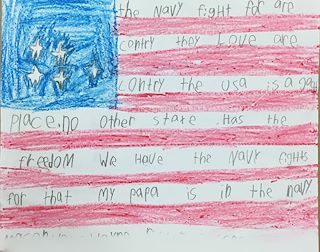 the Navy fight for are
contry they Love are
contry the usa is a
place.no other state .Has the
freedom We Have the Navy fights
for that My papa is in the navy